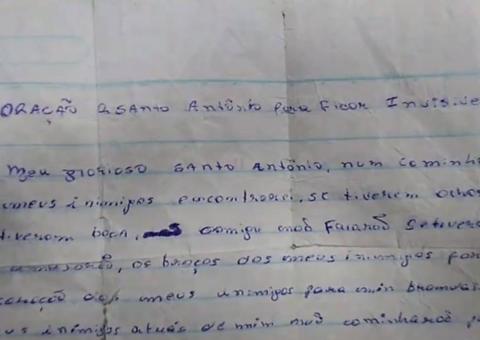 ORAÇÃO a SANTO Antônio para Ficar Invisive
Meu glorioso SANTO Antônio, num caminh
meus inimigos encontrarei, se tiverem olhos
tiverem boca, comigo não Falarão Setivere
os braços dos meus inimigos
coração dos meus inimigos para min
us inimigos atrás de mim não caminharão